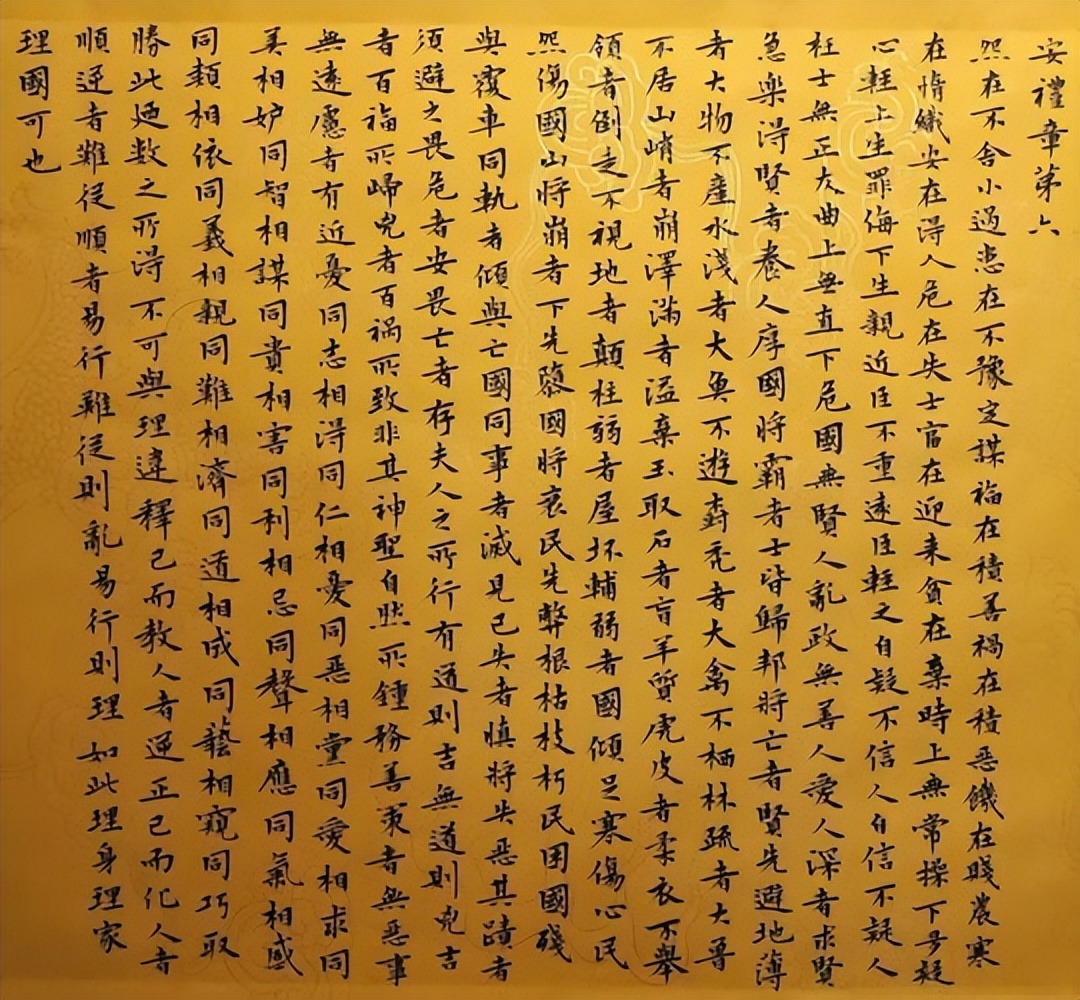 安禮章第六
怨在不舍小過患在不豫定謀福在積善禍在積惡饑在賤農寒
在惰織安在得人危在失士富在迎来貧在棄時上無常操下多疑
心輕上生罪侮下生親近臣不重遠臣輕之自疑不信人自信不疑人
枉士無正友曲上無直下危國無賢人亂政無善人愛人深者求賢
急樂得賢者養人厚國將霸者士皆歸邦將亡者賢先避地薄
者大物不產水淺者大魚不遊樹禿者大禽不栖林疏者大兽
不居山峭者崩澤滿者溢棄玉取石者盲羊質虎皮者柔衣不舉
領者倒走不視地者顛柱弱者屋坏輔弱者國傾足寒傷心民
怨傷國山將崩者下先隳國將衰民先弊根枯枝朽民困國殘
與覆車同軌者傾與亡國同事者滅見已失者慎將失惡其蹟者
須避之畏危者安畏亡者存夫人之所行有道則吉無道則凶吉
者百福所歸凶者百禍所致非其神聖自然所鍾務善策者無惡事
無遠慮者有近憂同志相得同仁相憂同惡相黨同愛相求同
美相妒同智相謀同貴相害同利相忌同聲相應同氣相感
同類相依同義相親同難相濟同道相成同藝相窺同巧取
勝此迺数之所得不可與理違釋己而教人者逆正己而化人者
順逆者難從順者易行難從則亂易行則理如此理身理家
理國可也